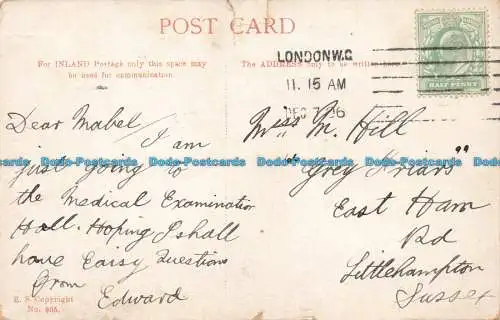 POST CARD
For INLAND Postage only this space may
be used for communication.
The ADDRESS only to be written
LONDON W.C
11.15 AM
DEC 7 06
HALF PENNY
Dear Mabel
I am
just going to
the Medical Examination
Hall. Hoping I shall
have Eaisy Questions
From
Edward
Miss M. Hill
"Grey Friars"
East Ham
Rd
Littlehampton
Sussex
Postcards Dodo-Postcards Dodo-Postcards Dodo-Postcards Dodo-Postcards
R. S. Copyright
No. 805.